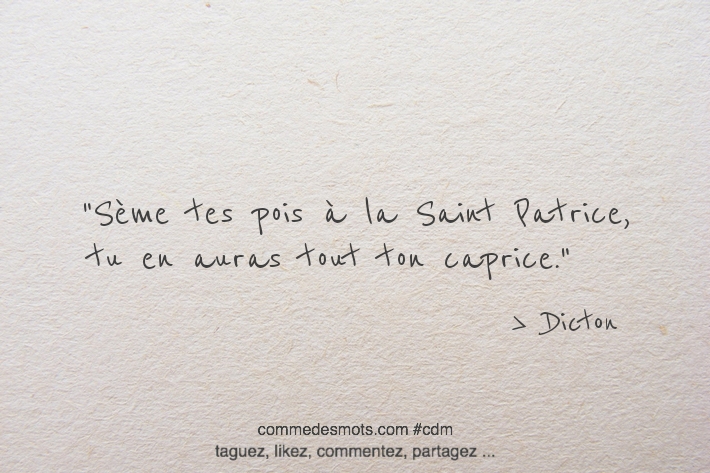 "Sème tes pois à la Saint Patrice,
tu en auras tout ton caprice."
> Dicton
commedesmots.com #cdm
taguez, likez, commentez, partagez ...